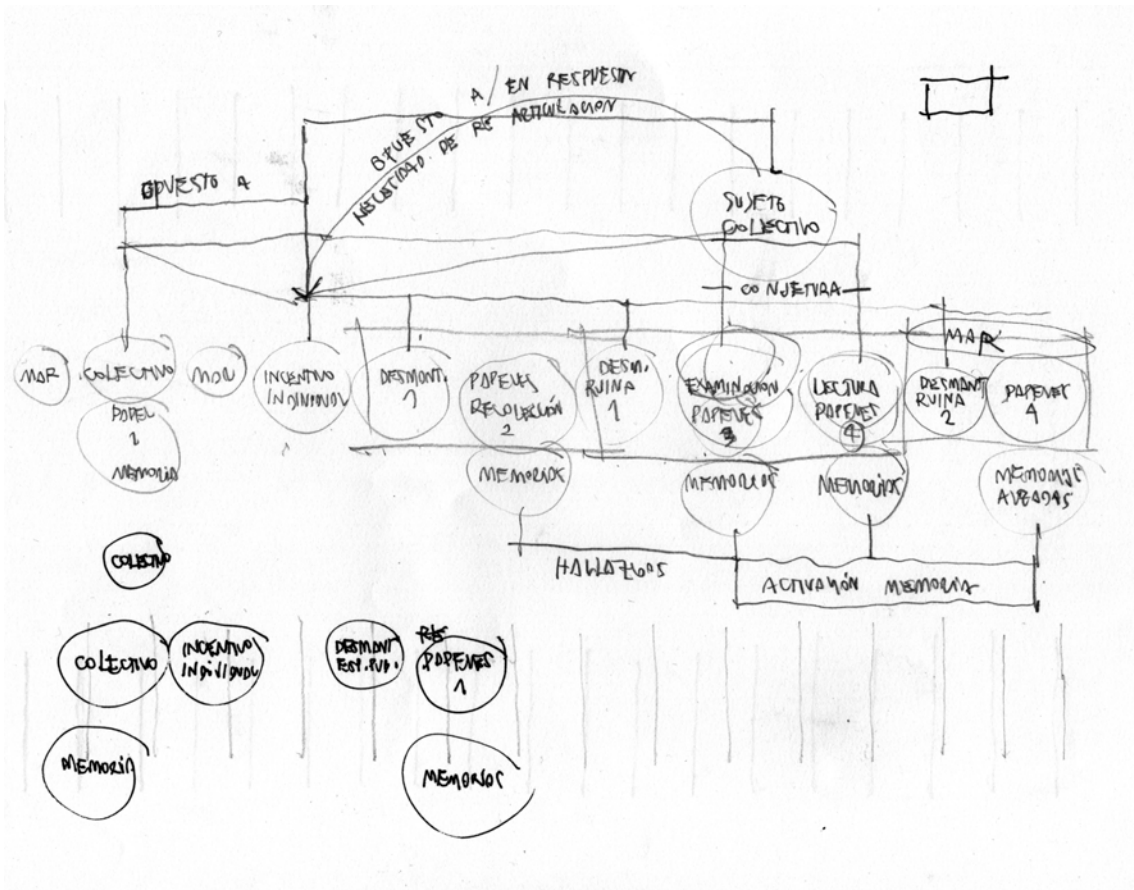 A / EN RESPUESTA
OPUESTO
NECESIDAD DE RE ARTICULACION
OPUESTO A
SUJETO
COLECTIVO
CONJETURA
MAR
MAR
COLECTIVO
MAR
INCENTIVO
INDIVIDUAL
DESMONT.
1
PAPELES
RECOLECCIÓN
2
DESM.
RUINA
1
EXAMINACION
PAPELES
3
LECTURA
PAPELES
4
DESMONT
RUINA
2
PAPELES
4
PAPEL
1
MEMORIA
MEMORIAS
MEMORIAS
MEMORIAS
MEMORIAS
HALLAZGOS
ACTIVACIÓN MEMORIA
COLECTIVO
COLECTIVO
INCENTIVO
INDIVIDUAL
DESMONT
ESP. PUB.
PAPELES
1
MEMORIA
MEMORIAS